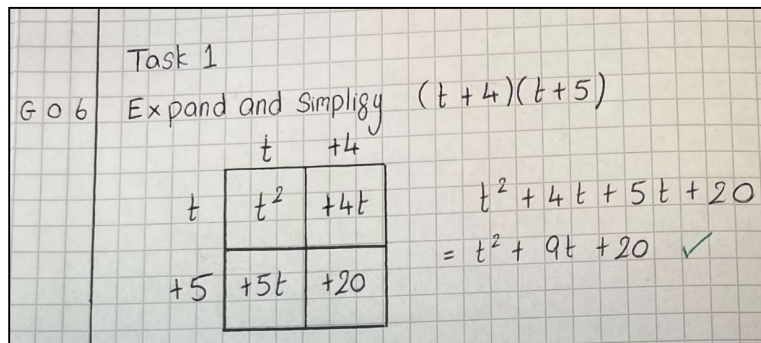 Task 1
G06 Expand and simplify (t+4)(t+5)
t +4
t t² +4t
+5 +5t +20
t² + 4t + 5t + 20
= t² + 9t + 20 ✓